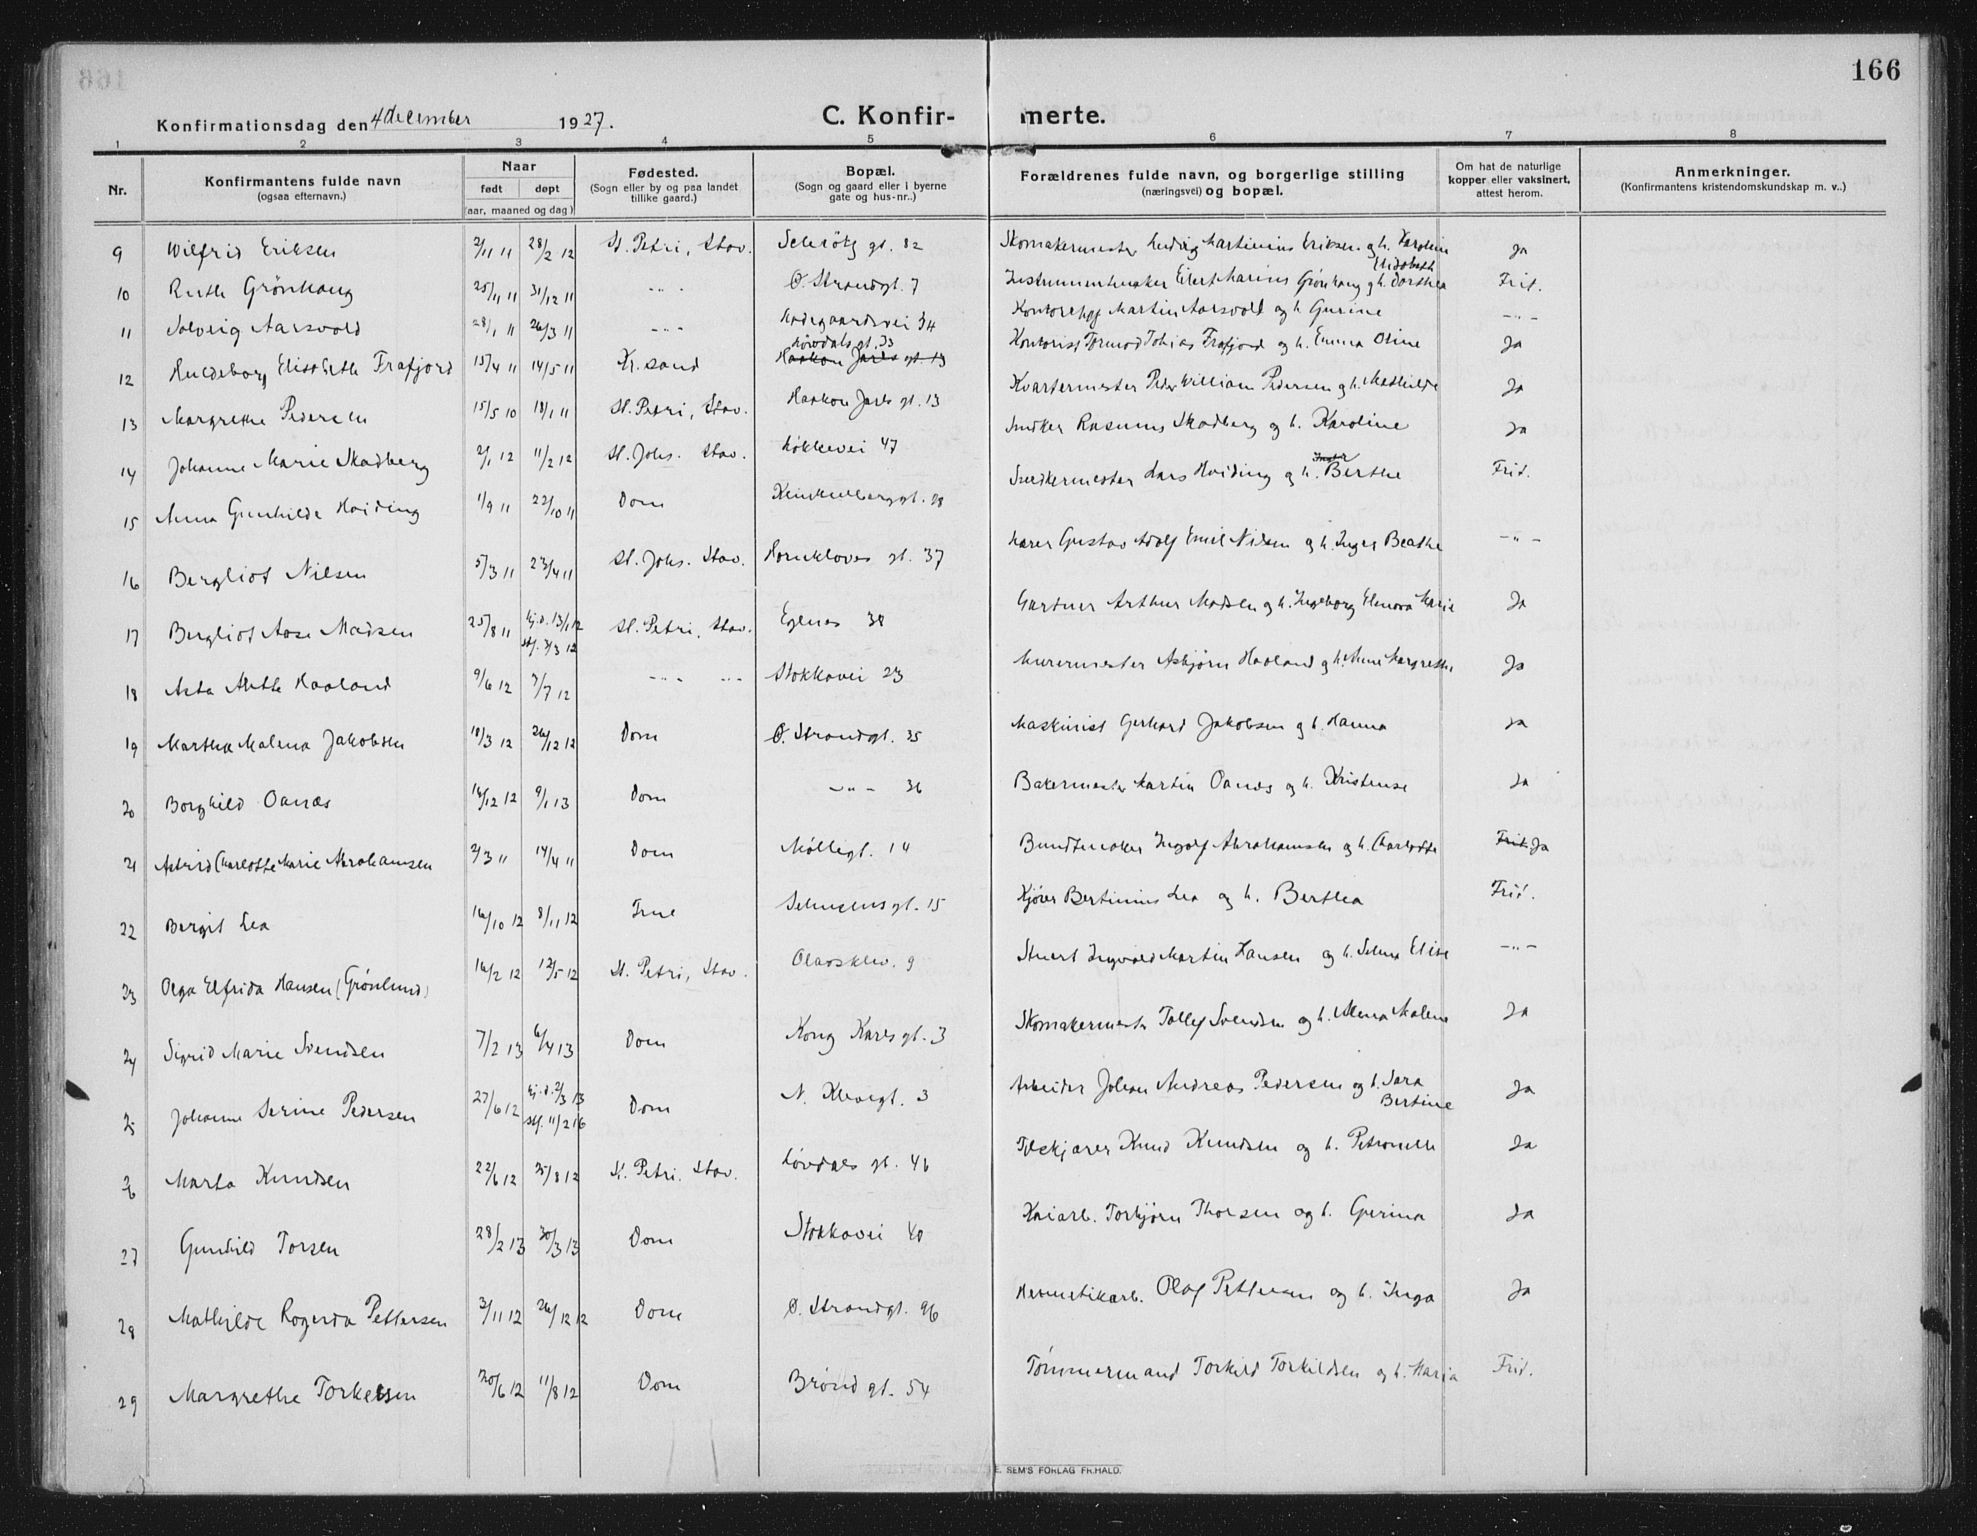 166
Konfirmationsdag den 4 december 1927. C. Konfirmerte.
1 2 3 4 5 6 7 8
Nr. Konfirmantens fulde navn (ogsaa efternavn.) Naar født døpt (aar, maaned og dag) Fødested. (Sogn eller by og paa landet tillike gaard.) Bopæl. (Sogn og gaard eller i byerne gate og hus-nr..) Forældrenes fulde navn, og borgerlige stilling (næringsvei) og bopæl. Om hat de naturlige kopper eller vaksinert, attest herom. Anmerkninger. (Konfirmantens kristendomskundskap m. v..)
9 Wilfrid Eriksen 2/11 11 28/2 12 St. Petri, Stav. gt. 82 Skomakermester Ludvig Martinius Eriksen og h. Karoline Elisabeth Ja
10 Ruth Grønhaug 25/11 11 31/12 11 -"- Ø. Strandgt. 7 Instrumentmaker Eilert Marius Grønhaug og h. Dorthea Frit.
11 Solveig Aarsvold 28/1 11 26/3 11 -"- 34 Martin Aarsvold og h. Gurine -"-
12 Elisabeth Frafjord 15/4 11 14/5 11 Kr.sand Løvdals gt. 33 Haakon Jarls gt 13 Kontorist Tormod Tobias Frafjord og h. Emma Oline Ja
13 Margrethe Pedersen 15/5 10 18/1 11 St. Petri, Stav. Haakon Jarls gt. 13 Kvartermester Peder William Pedersen og h. Mathilde Ja
14 Johanne Marie Skadberg 2/1 12 11/2 12 St. Johs. Stav. Løkkevei 47 Snedker Rasmus Skadberg og h. Karoline Ja
15 Anna Gunhilde Hoiding 1/9 11 22/10 11 Dom 28 Snedkermester Lars Hoiding og h. Berthe Frit.
16 Bergliot Nilsen 5/3 11 23/4 11 St. Johs. Stav. Hornkloves gt. 37 Gustav Adolf Emil Nilsen og h. Inger Beathe -"-
17 Bergliot Aase Madsen 25/8 11 Hj.d. 13/1 12 Stf. 3/3 12 St. Petri, Stav. Egenes 38 Gartner Arthur Madsen og h. Ingeborg Elenora Marie Ja
18 Asta Haaland 9/6 12 7/7 12 -"- -"- Stokkavei 23 Murermester Asbjørn Haaland og h. Anne Margrethe Ja
19 Martha Malena Jakobsen 18/3 12 26/12 12 Dom Ø. Strandgt. 35 Maskinist Gerhard Jakobsen og h. Hanna Ja
20 Borghild Oanæs 16/12 12 9/1 13 Dom -"- 36 Bakermester Martin Oanæs og h. Kristense Ja
21 Astrid Charlotte Marie Abrahamsen 2/3 11 14/4 11 Dom Møllegt. 14 Bundtmaker Ingolf Abrahamsen og h. Charlotte Frit Ja
22 Bergit Lea 16/10 12 8/11 12 Dom gt. 15 Kjører Bertinius Lea og h. Berthea Frit.
23 Olga Elfrida Hansen (Grønlund) 16/2 12 12/5 12 St. Petri, Stav. Olavsklev. 9 Stuert Ingvald Martin Hansen og h. Selma Elise -"-
24 Sigrid Marie Svendsen 7/2 13 6/4 13 Dom Kong Karls gt. 3 Skomakermester Tollef Svendsen og h. Malene Ja
25 Johanne Serine Pedersen 27/6 12 Hj.d. 2/3 13 Stf. 11/2 16 Dom N. Klevegt. 3 Arbeider Johan Andreas Pedersen og h. Sara Bertine Ja
26 Marta Knudsen 22/6 12 25/8 12 St. Petri. Stav. Løvdals gt. 46 Knud Knudsen og h. Petronelle Ja
27 Gunhild Torsen 28/2 13 30/3 13 Dom Stokkavei 40 Kaiarb. Torbjørn Thorsen og h. Gurina Ja
28 Mathilde Rogerda Pettersen 3/11 12 26/12 12 Dom Ø. Strandgt. 96 Hermetikarb. Olaf Pettersen og h. Inga Ja
29 Margrethe Torkelsen 20/6 12 11/8 12 Dom Brønd gt. 54 Tømmermand Torkild Torkildsen og h. Maria Frit.
E. SEM'S FORLAG FR.HALD.